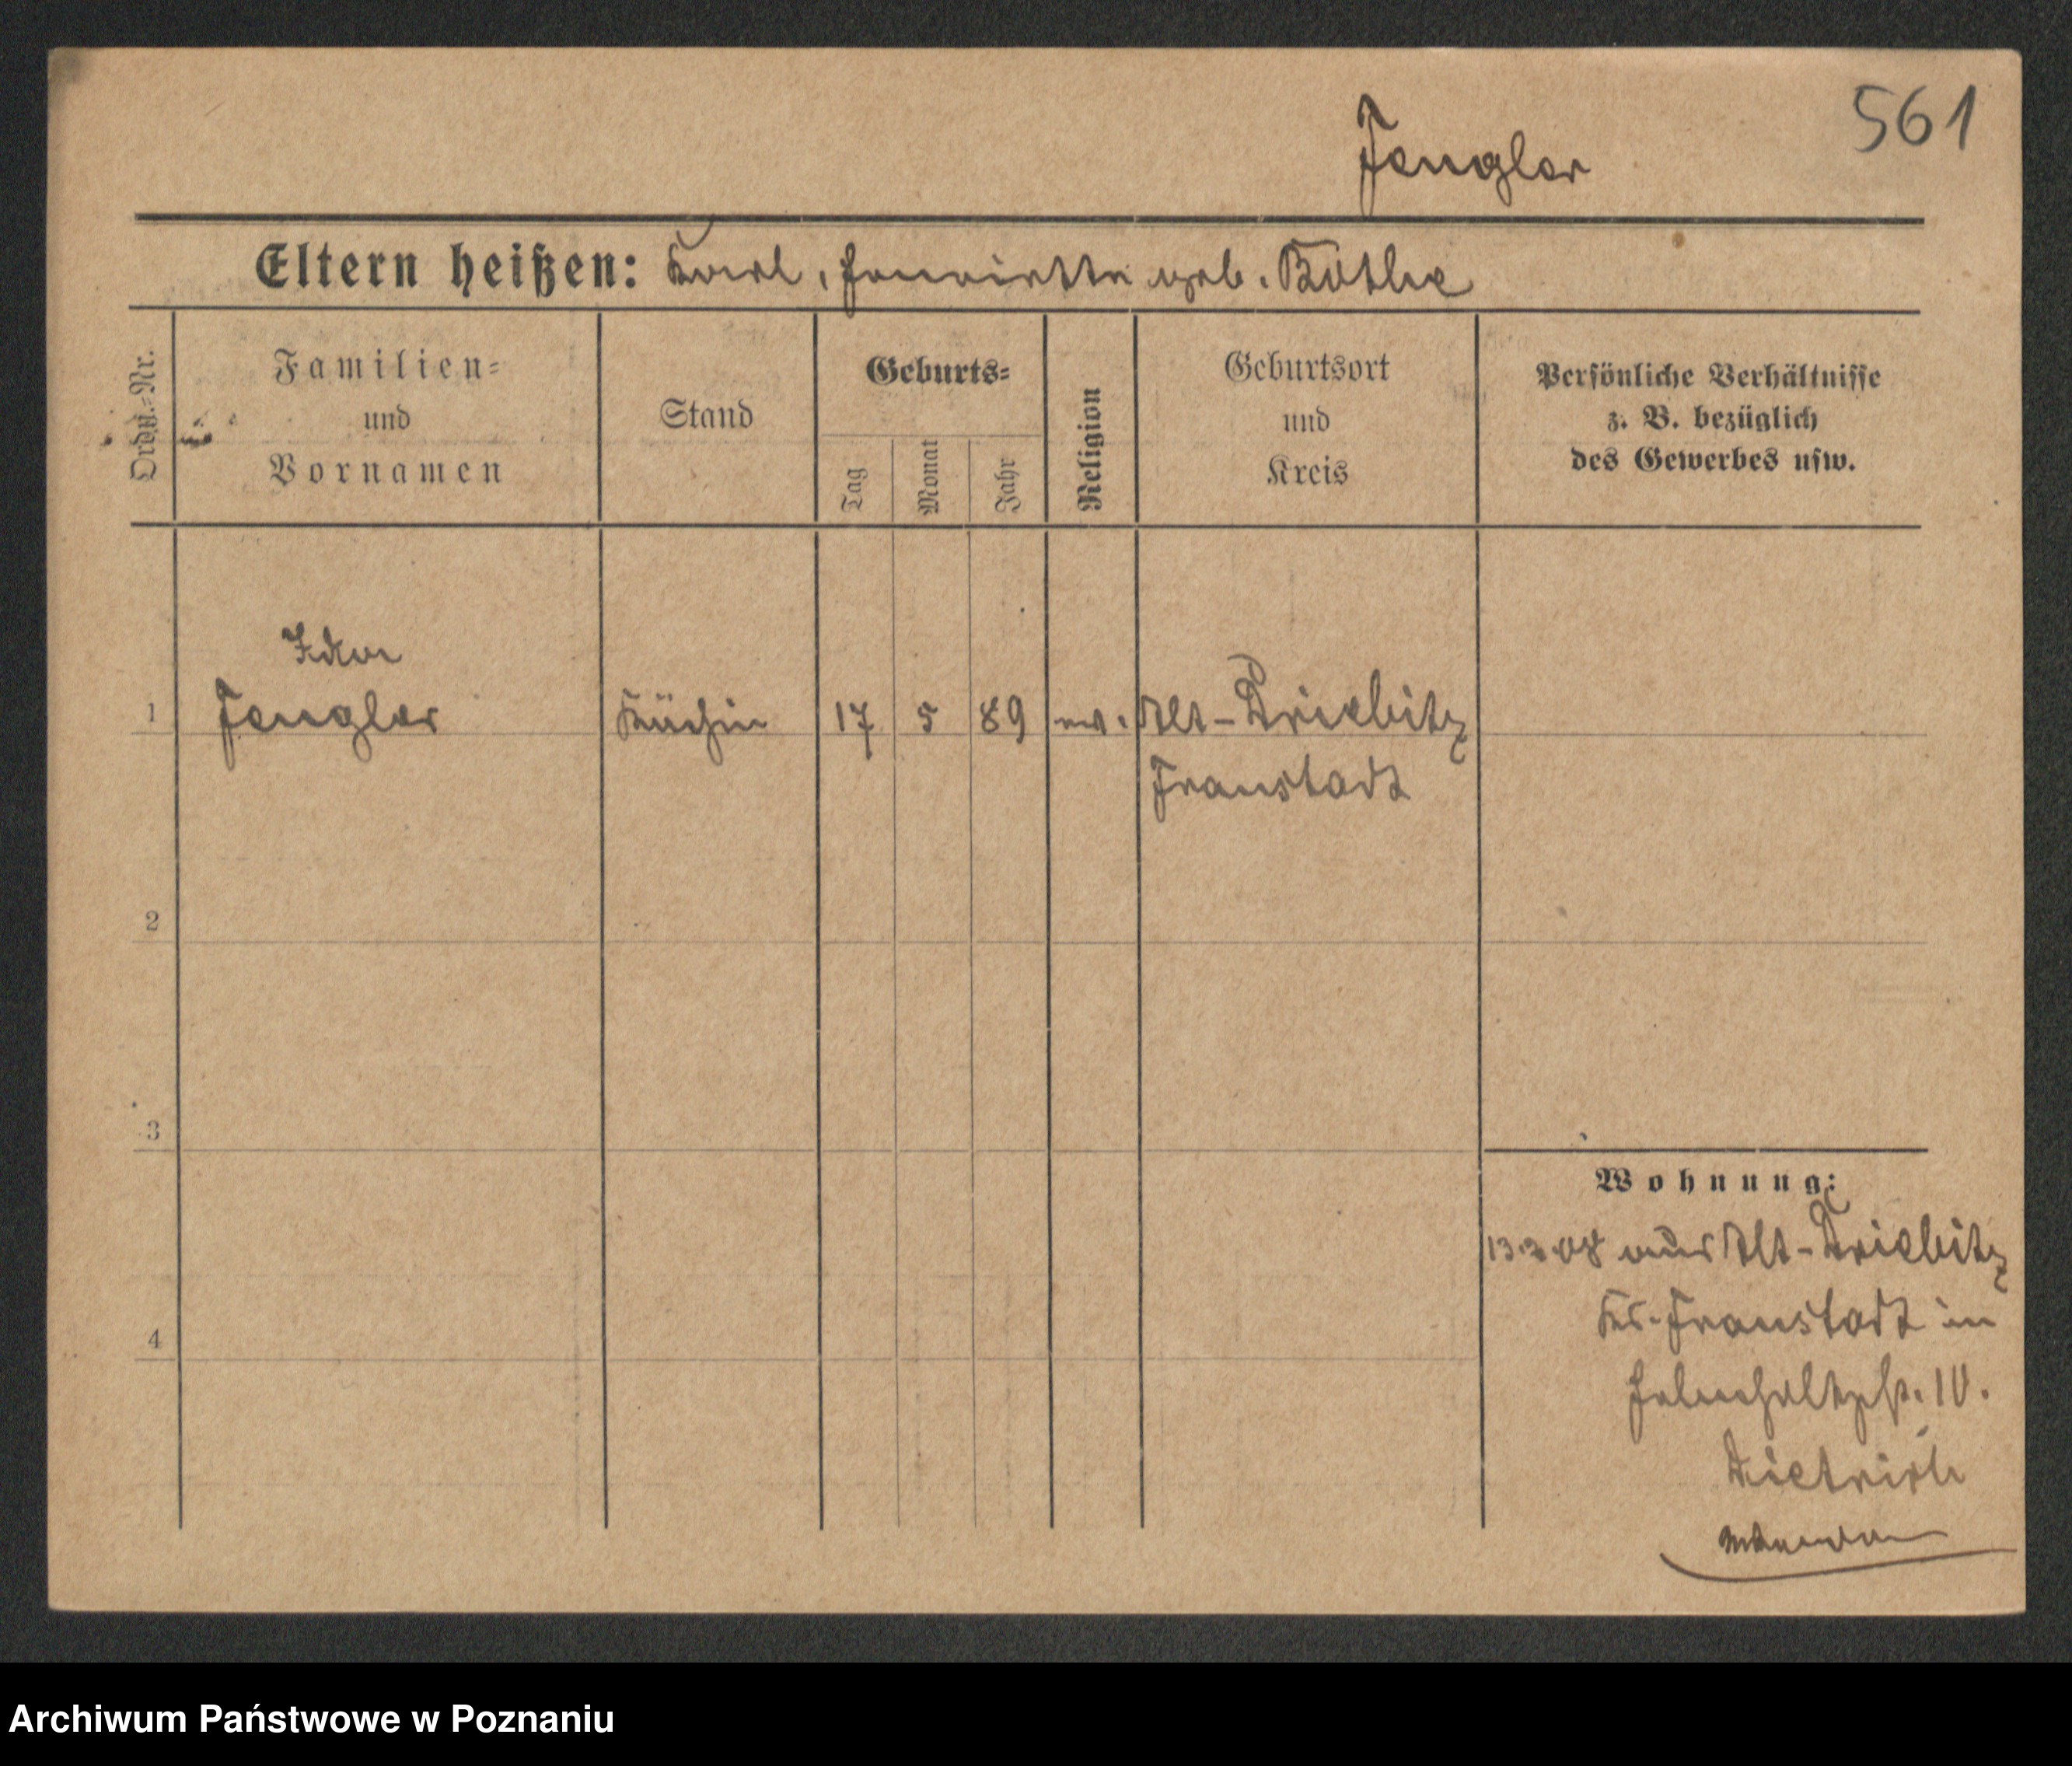 561
Fengler
Eltern heißen: Karl, Henriette geb.Böthe
Ordn.-Nr.
Familien-
und
Vornamen
Stand
Geburts-
Tag
Monat
Jahr
Religion
Geburtsort
und
Kreis
Persönliche Verhältnisse
z. B. bezüglich
des Gewerbes usw.
Ida
1 Fengler Köchin 17 5 89 ev. Alt-Driebitz
Fraustadt
2
3
4
Wohnung:
08 aus Alt-Driebitz
Kr. Fraustadt in
10.
Dietrich
Archiwum Państwowe w Poznaniu